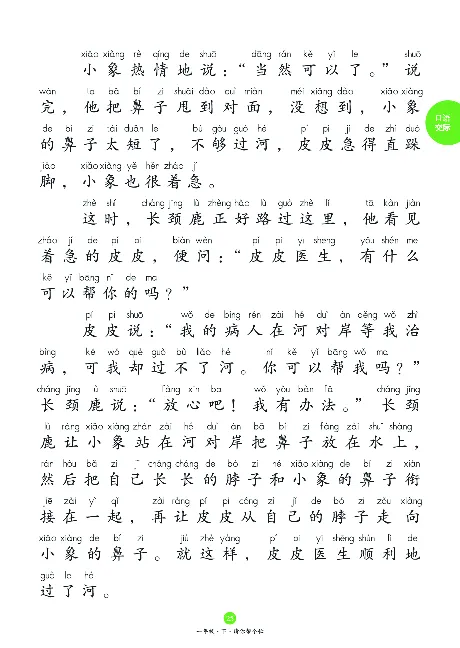 xiǎo xiàng rè qíng de shuō dāng rán kě yǐ le shuō
小象热情地说：“当然可以了。”说
wán tā bǎ bí zi shuǎi dào duì miàn méi xiǎng dào xiǎo xiàng
完，他把鼻子甩到对面，没想到，小象
de bí zi tài duǎn le bú gòu guò hé pí pi jí de zhí duò
的鼻子太短了，不够过河，皮皮急得直跺
jiǎo xiǎo xiàng yě hěn zháo jí
脚，小象也很着急。
口语
交际
zhè shí cháng jǐng lù zhèng hǎo lù guò zhè lǐ tā kàn jiàn
这时，长颈鹿正好路过这里，他看见
zháo jí de pí pi biàn wèn pí pi yī shēng yǒu shén me
着急的皮皮，便问：“皮皮医生，有什么
kě yǐ bāng nǐ de ma
可以帮你的吗？”
pí pi shuō wǒ de bìng rén zài hé duì àn děng wǒ zhì
皮皮说：“我的病人在河对岸等我治
bìng kě wǒ què guò bù liǎo hé nǐ kě yǐ bāng wǒ ma
病，可我却过不了河。你可以帮我吗？”
cháng jǐng lù shuō fàng xīn ba wǒ yǒu bàn fǎ cháng jǐng
长颈鹿说：“放心吧！我有办法。”长颈
lù ràng xiǎo xiàng zhàn zài hé duì àn bǎ bí zi fàng zài shuǐ shàng
鹿让小象站在河对岸把鼻子放在水上，
rán hòu bǎ zì jǐ cháng cháng de bó zi hé xiǎo xiàng de bí zi xián
然后把自己长长的脖子和小象的鼻子衔
jiē zài yì qǐ zài ràng pí pi cóng zì jǐ de bó zi zǒu xiàng
接在一起，再让皮皮从自己的脖子走向
xiǎo xiàng de bí zi jiù zhè yàng pí pi yī shēng shùn lì de
小象的鼻子。就这样，皮皮医生顺利地
guò le hé
过了河。
25
一年级·下·请你帮个忙